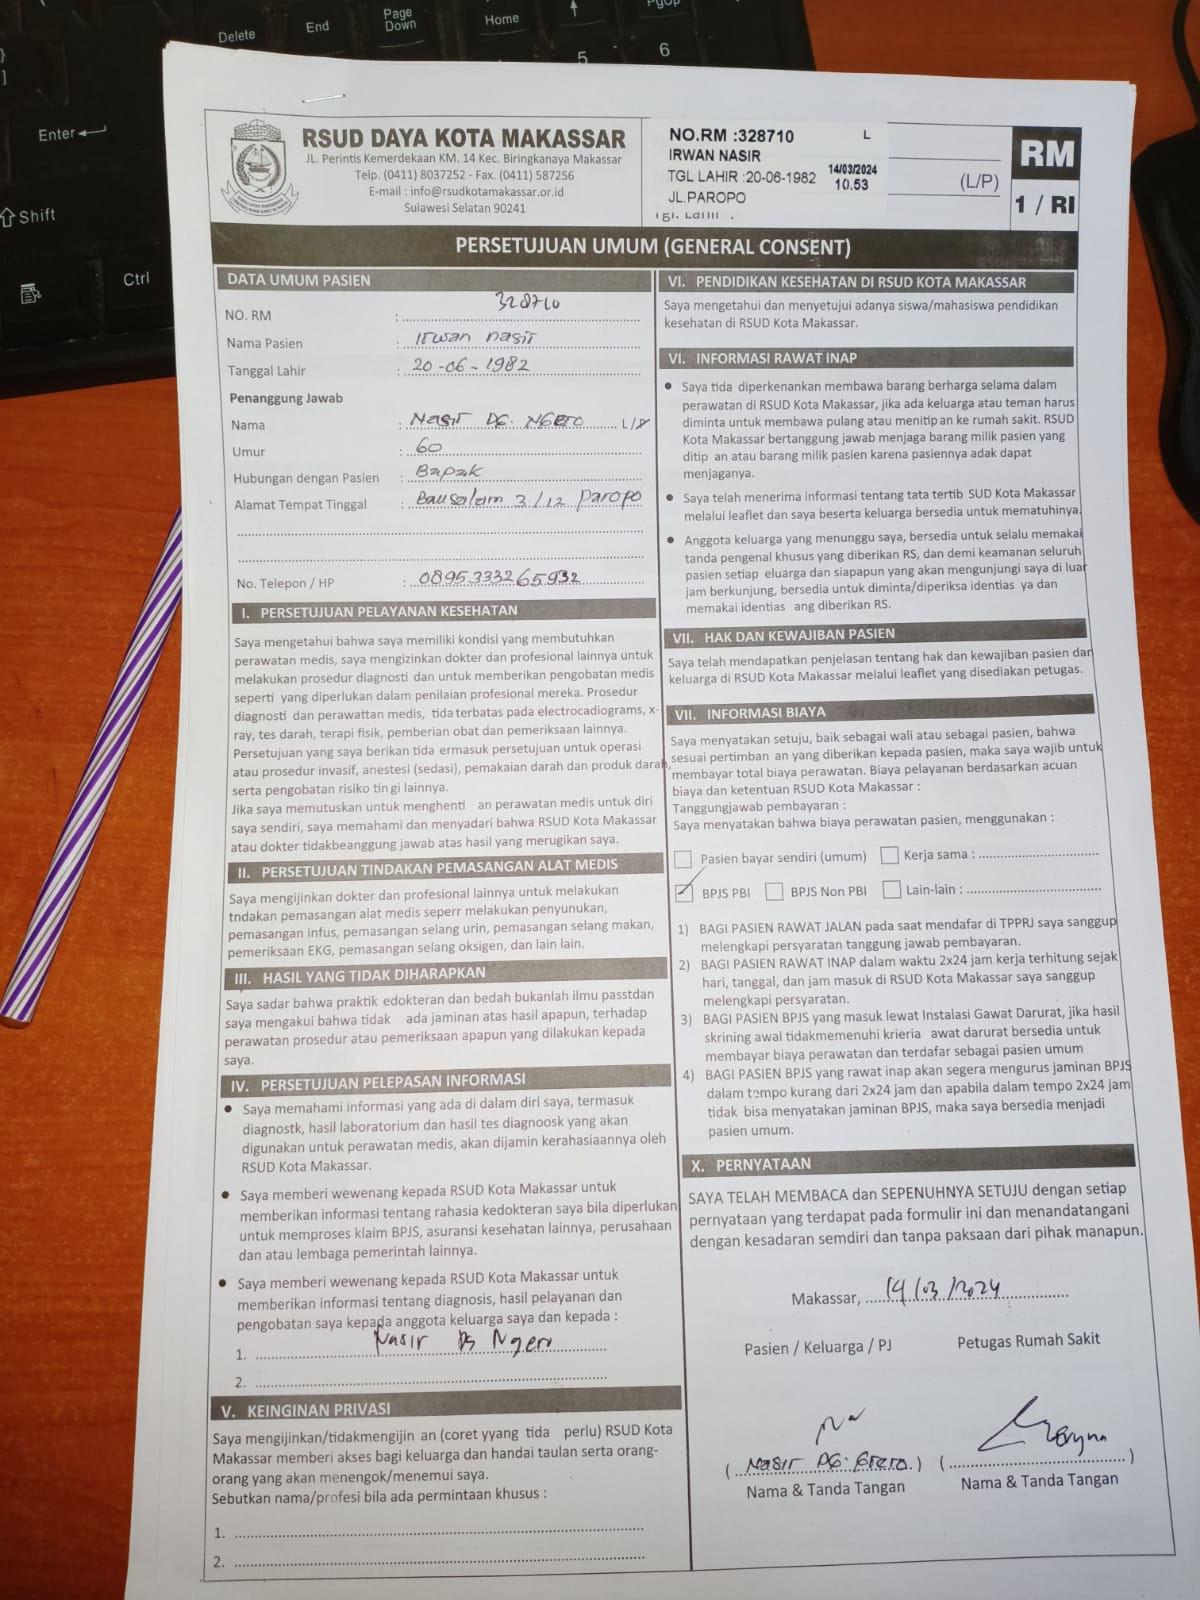 Delete
End
Page
Down
Home
PgUp
5
6
}
]
Enter
Shift
Ctrl
RSUD DAYA KOTA MAKASSAR
JL. Perintis Kemerdekaan KM. 14 Kec. Biringkanaya Makassar
Telp. (0411) 8037252 - Fax. (0411) 587256
E-mail : info@rsudkotamakassar.or.id
Sulawesi Selatan 90241
NO.RM :328710 L
IRWAN NASIR
TGL LAHIR :20-06-1982 14/03/2024
10.53
JL.PAROPO
Tgl. Lahir :
(L/P)
RM
1 / RI
PERSETUJUAN UMUM (GENERAL CONSENT)
DATA UMUM PASIEN
NO. RM : 328710
Nama Pasien : Irwan nasir
Tanggal Lahir : 20-06-1982
Penanggung Jawab
Nama : Nasir DG. NGERO L/P
Umur : 60
Hubungan dengan Pasien : Bapak
Alamat Tempat Tinggal : 3/12 Paropo
No. Telepon / HP : 0895333265932
I. PERSETUJUAN PELAYANAN KESEHATAN
Saya mengetahui bahwa saya memiliki kondisi yang membutuhkan
perawatan medis, saya mengizinkan dokter dan profesional lainnya untuk
melakukan prosedur diagnosti dan untuk memberikan pengobatan medis
seperti yang diperlukan dalam penilaian profesional mereka. Prosedur
diagnosti dan perawattan medis, tida terbatas pada electrocadiograms, x-
ray, tes darah, terapi fisik, pemberian obat dan pemeriksaan lainnya.
Persetujuan yang saya berikan tida ermasuk persetujuan untuk operasi
atau prosedur invasif, anestesi (sedasi), pemakaian darah dan produk darah,
serta pengobatan risiko tin gi lainnya.
Jika saya memutuskan untuk menghenti an perawatan medis untuk diri
saya sendiri, saya memahami dan menyadari bahwa RSUD Kota Makassar
atau dokter tidakbeanggung jawab atas hasil yang merugikan saya.
II. PERSETUJUAN TINDAKAN PEMASANGAN ALAT MEDIS
Saya mengijinkan dokter dan profesional lainnya untuk melakukan
tndakan pemasangan alat medis seperr melakukan penyunukan,
pemasangan infus, pemasangan selang urin, pemasangan selang makan,
pemeriksaan EKG, pemasangan selang oksigen, dan lain lain.
III. HASIL YANG TIDAK DIHARAPKAN
Saya sadar bahwa praktik edokteran dan bedah bukanlah ilmu passtdan
saya mengakui bahwa tidak ada jaminan atas hasil apapun, terhadap
perawatan prosedur atau pemeriksaan apapun yang dilakukan kepada
saya.
IV. PERSETUJUAN PELEPASAN INFORMASI
● Saya memahami informasi yang ada di dalam diri saya, termasuk
diagnostk, hasil laboratorium dan hasil tes diagnoosk yang akan
digunakan untuk perawatan medis, akan dijamin kerahasiaannya oleh
RSUD Kota Makassar.
● Saya memberi wewenang kepada RSUD Kota Makassar untuk
memberikan informasi tentang rahasia kedokteran saya bila diperlukan
untuk memproses klaim BPJS, asuransi kesehatan lainnya, perusahaan
dan atau lembaga pemerintah lainnya.
● Saya memberi wewenang kepada RSUD Kota Makassar untuk
memberikan informasi tentang diagnosis, hasil pelayanan dan
pengobatan saya kepada anggota keluarga saya dan kepada :
1. Nasir DG Ngero
2.
V. KEINGINAN PRIVASI
Saya mengijinkan/tidakmengijin an (coret yyang tida perlu) RSUD Kota
Makassar memberi akses bagi keluarga dan handai taulan serta orang-
orang yang akan menengok/menemui saya.
Sebutkan nama/profesi bila ada permintaan khusus :
1.
2.
VI. PENDIDIKAN KESEHATAN DI RSUD KOTA MAKASSAR
Saya mengetahui dan menyetujui adanya siswa/mahasiswa pendidikan
kesehatan di RSUD Kota Makassar.
VI. INFORMASI RAWAT INAP
● Saya tida diperkenankan membawa barang berharga selama dalam
perawatan di RSUD Kota Makassar, jika ada keluarga atau teman harus
diminta untuk membawa pulang atau menitip an ke rumah sakit. RSUD
Kota Makassar bertanggung jawab menjaga barang milik pasien yang
ditip an atau barang milik pasien karena pasiennya adak dapat
menjaganya.
● Saya telah menerima informasi tentang tata tertib SUD Kota Makassar
melalui leaflet dan saya beserta keluarga bersedia untuk mematuhinya.
● Anggota keluarga yang menunggu saya, bersedia untuk selalu memakai
tanda pengenal khusus yang diberikan RS, dan demi keamanan seluruh
pasien setiap eluarga dan siapapun yang akan mengunjungi saya di luar
jam berkunjung, bersedia untuk diminta/diperiksa identias ya dan
memakai identias ang diberikan RS.
VII. HAK DAN KEWAJIBAN PASIEN
Saya telah mendapatkan penjelasan tentang hak dan kewajiban pasien dan
keluarga di RSUD Kota Makassar melalui leaflet yang disediakan petugas.
VII. INFORMASI BIAYA
Saya menyatakan setuju, baik sebagai wali atau sebagai pasien, bahwa
sesuai pertimban an yang diberikan kepada pasien, maka saya wajib untuk
membayar total biaya perawatan. Biaya pelayanan berdasarkan acuan
biaya dan ketentuan RSUD Kota Makassar :
Tanggungjawab pembayaran :
Saya menyatakan bahwa biaya perawatan pasien, menggunakan :
Pasien bayar sendiri (umum) Kerja sama :
BPJS PBI BPJS Non PBI Lain-lain :
1) BAGI PASIEN RAWAT JALAN pada saat mendafar di TPPRJ saya sanggup
melengkapi persyaratan tanggung jawab pembayaran.
2) BAGI PASIEN RAWAT INAP dalam waktu 2x24 jam kerja terhitung sejak
hari, tanggal, dan jam masuk di RSUD Kota Makassar saya sanggup
melengkapi persyaratan.
3) BAGI PASIEN BPJS yang masuk lewat Instalasi Gawat Darurat, jika hasil
skrining awal tidakmemenuhi krieria awat darurat bersedia untuk
membayar biaya perawatan dan terdafar sebagai pasien umum
4) BAGI PASIEN BPJS yang rawat inap akan segera mengurus jaminan BPJS
dalam tempo kurang dari 2x24 jam dan apabila dalam tempo 2x24 jam
tidak bisa menyatakan jaminan BPJS, maka saya bersedia menjadi
pasien umum.
X. PERNYATAAN
SAYA TELAH MEMBACA dan SEPENUHNYA SETUJU dengan setiap
pernyataan yang terdapat pada formulir ini dan menandatangani
dengan kesadaran semdiri dan tanpa paksaan dari pihak manapun.
Makassar, 14/03/2024
Pasien / Keluarga / PJ Petugas Rumah Sakit
(Nasir DG.) ()
Nama & Tanda Tangan Nama & Tanda Tangan